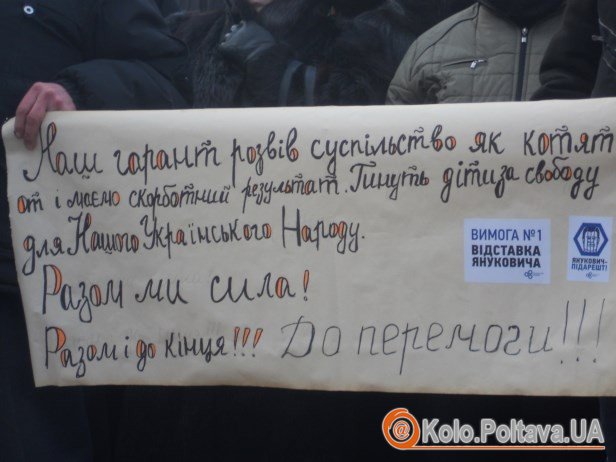 Наш гарант розвів суспільство як котят
от і маємо скорботний результат. Гинуть діти за свободу
для Нашого Українського Народу.
Разом ми сила!
Разом і до кінця!!! До перемоги!!!
ВИМОГА №1
ВІДСТАВКА
ЯНУКОВИЧА
ЯНУКОВИЧ-
ПІДАРЕШТ!
@Kolo.Poltava.UA